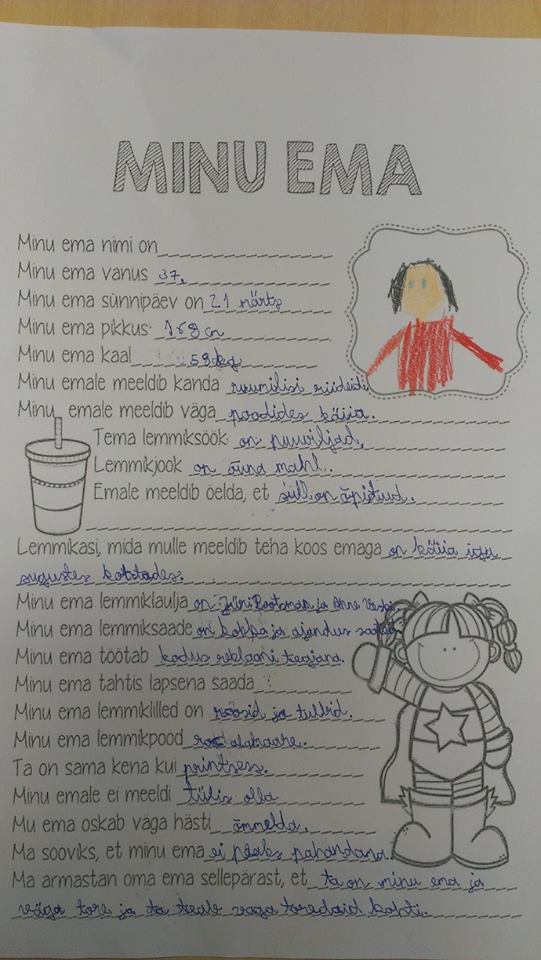 MINU EMA
Minu ema nimi on
Minu ema vanus 37.
Minu ema sünnipäev on 21 märts
Minu ema pikkus 168 cm
Minu ema kaal 58kg
Minu emale meeldib kanda ruumilisi riideid.
Minu emale meeldib väga poodides käia.
Tema lemmiksöök on puuviljad.
Lemmikjook on õuna mahl.
Emale meeldib öelda, et sull on õpitud.
Lemmikasi, mida mulle meeldib teha koos emaga on käia igas
sugustes kohtades.
Minu ema lemmiklaulja on Jüri Pootsman ja Anne Veski.
Minu ema lemmiksaade on kokka ja ajandus saated
Minu ema töötab kodus reklaami tegijana.
Minu ema tahtis lapsena saada
Minu ema lemmiklilled on roosid ja tulbid.
Minu ema lemmikpood
Ta on sama kena kui printsess.
Minu emale ei meeldi tülis olla
Mu ema oskab väga hästi õmmelda.
Ma sooviks, et minu ema ei peaks pahandama.
Ma armastan oma ema sellepärast, et ta on minu ema ja
väga tore ja ta teab väga toredaid kohti.